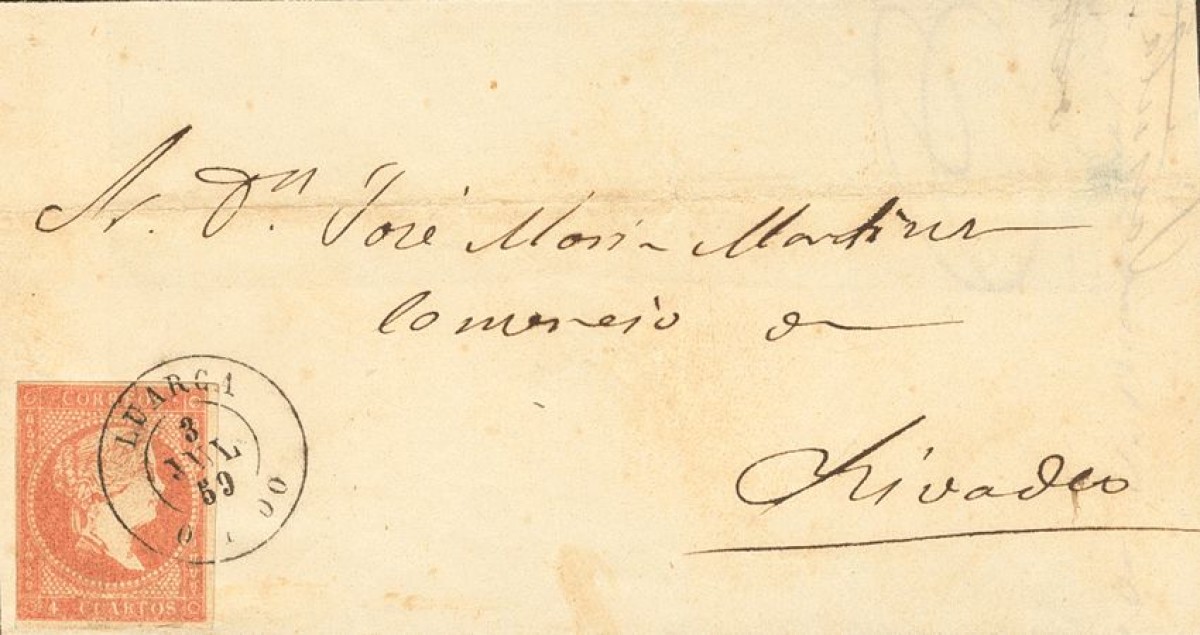 A. Dn José María Martinez
Comercio en
Rivadeo
CORREOS
4 CUARTOS
LUARCA
3
JUL
59